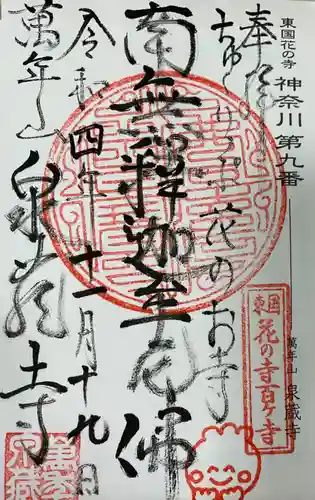 東国花の寺
神奈川 第九番
萬年山 泉蔵寺
奉拝
花のお寺
南無釋迦牟尼佛
令和四年十一月十九日
萬年山泉蔵寺
東国
花の寺百ケ寺